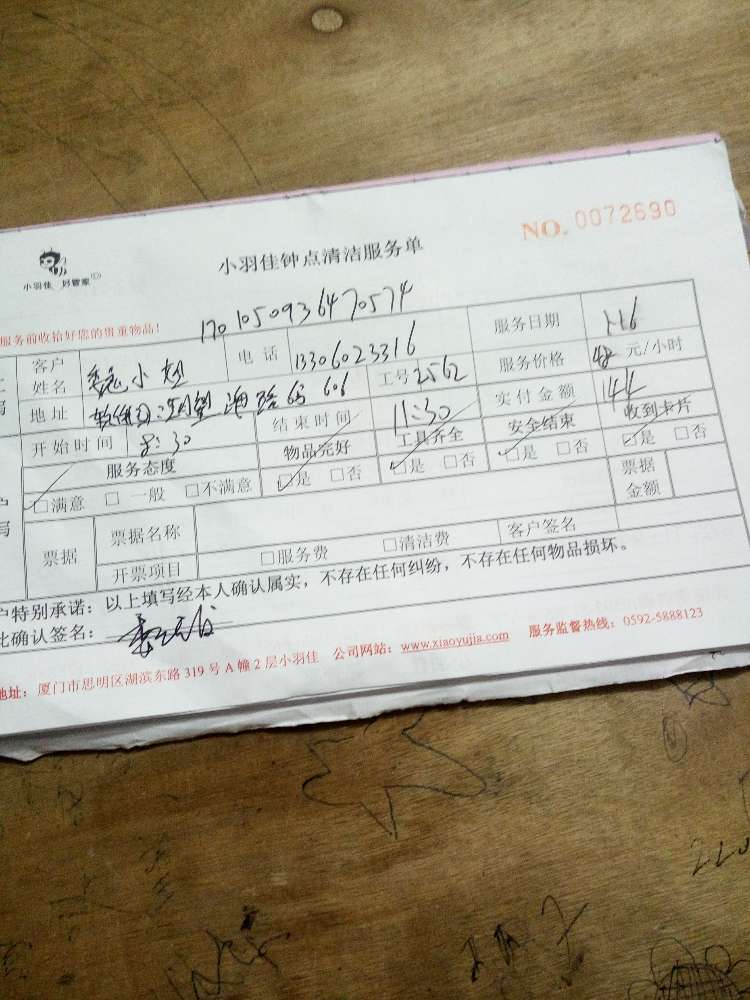 NO. 0072690
小羽佳 好管家
小羽佳钟点清洁服务单
服务前收拾好您的贵重物品!
1701050936470574
客户姓名 魏小姐 电话 13306023316 服务日期 1.16
地址 海路 606 工号 2562 服务价格 48 元/小时
开始时间 8:30 结束时间 11:30 实付金额 144
服务态度 物品完好 工具齐全 安全结束 收到卡片
□满意 □一般 □不满意 □是 □否 □是 □否 □是 □否 □是 □否
票据 票据名称 票据金额
开票项目 □服务费 □清洁费 客户签名
户特别承诺:以上填写经本人确认属实,不存在任何纠纷,不存在任何物品损坏。
此确认签名:
地址:厦门市思明区湖滨东路319号A幢2层小羽佳 公司网站:www.xiaoyujia.com 服务监督热线:0592-5888123